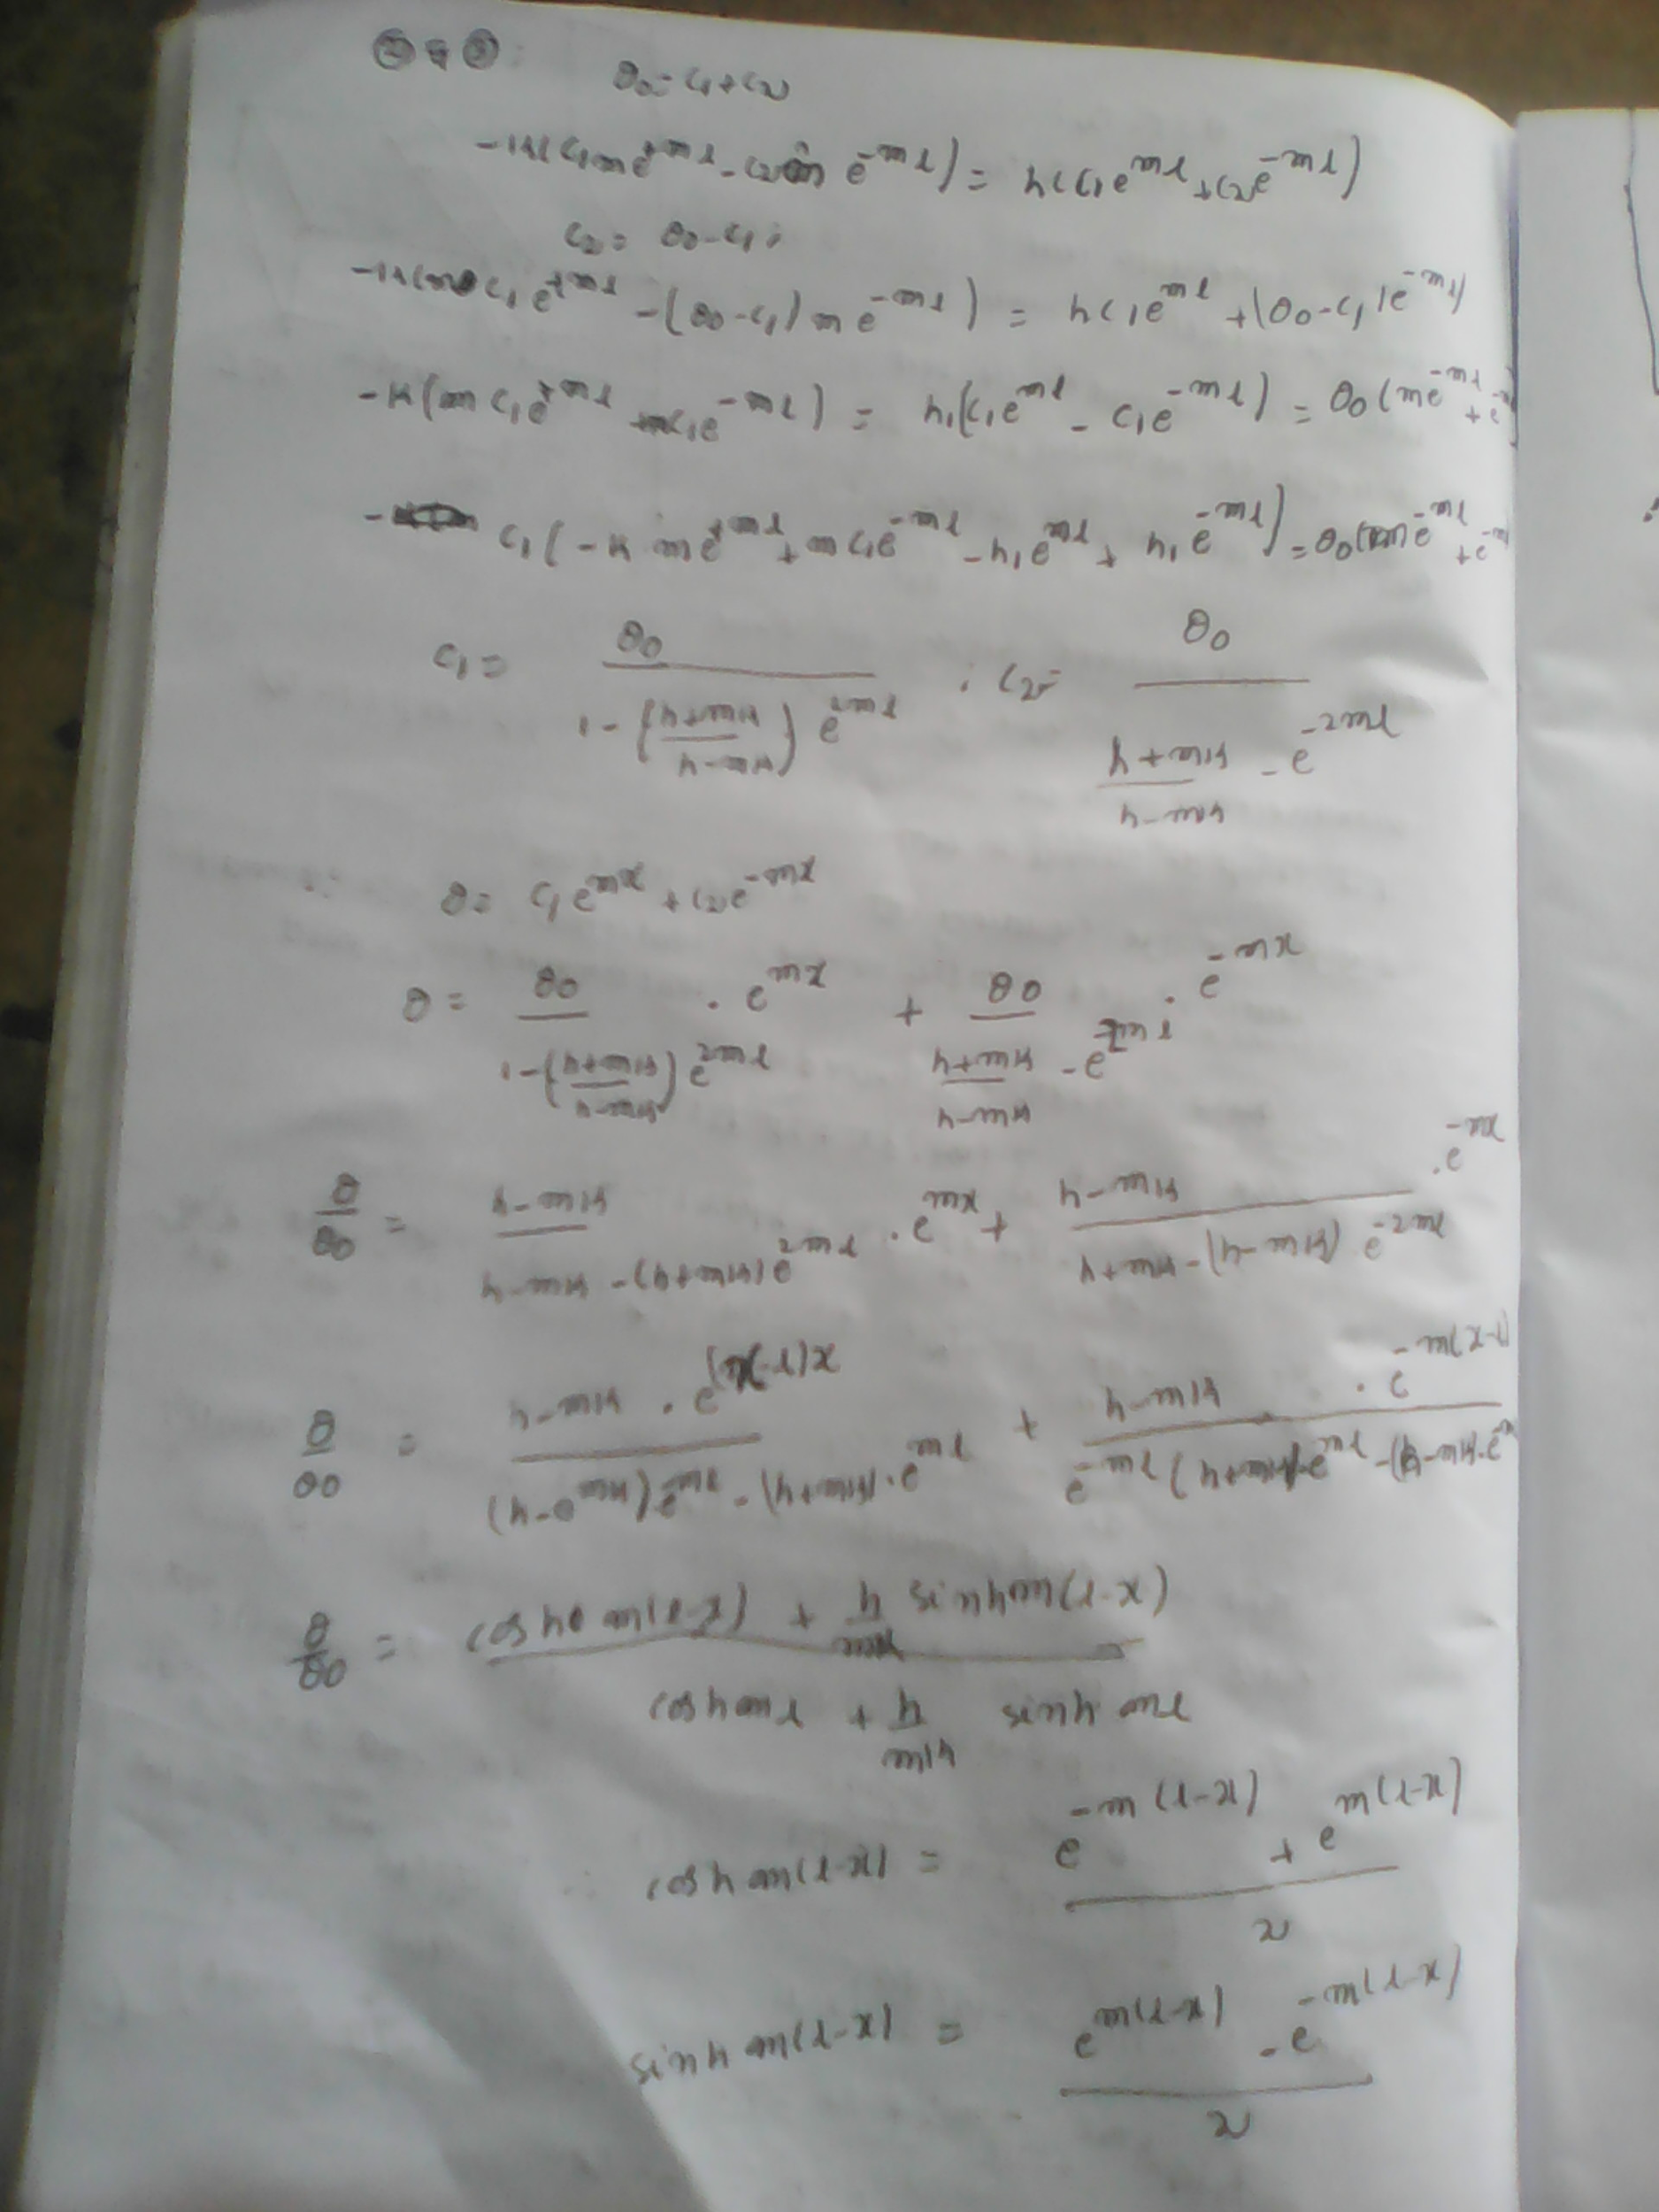 ② & ③: θ₀ = c₁+c₂
-k(c₁me^{+ml} - c₂m e^{-ml}) = h(c₁e^{ml} + c₂e^{-ml})
c₂ = θ₀-c₁;
-k(m c₁e^{+ml} - (θ₀-c₁) m e^{-ml}) = hc₁e^{ml} + (θ₀-c₁)e^{-ml}
-k(m c₁e^{+ml} + mc₁e^{-ml}) = h₁(c₁e^{ml} - c₁e^{-ml}) = θ₀(me^{-ml} + e
- c₁(-k me^{+ml} + m c₁e^{-ml} - h₁e^{ml} + h₁e^{-ml}) = θ₀(kme^{-ml} + e
c₁ = θ₀ / (1-((h+mk)/(h-mk)) e^{2ml}) ; c₂ = θ₀ / ((h+mk)/(h-mk) - e^{-2ml})
θ = c₁e^{mx} + c₂e^{-mx}
θ = θ₀ / (1-((h+mk)/(h-mk)) e^{2ml}) · e^{mx} + θ₀ / ((h+mk)/(h-mk) - e^{-2ml}) · e^{-mx}
θ/θ₀ = (h-mk) / (h-mk-(h+mk)e^{2ml}) · e^{mx} + (h-mk) / (h+mk-(h-mk) e^{-2ml}) · e^{-mx}
θ/θ₀ = h-mk · e^{(x-l)x} / ((h-mk)e^{-ml} - (h+mk)·e^{ml}) + h-mk · e^{-m(x-l)} / (e^{-ml}(h+mk)·e^{ml} - (h-mk)·e
θ/θ₀ = (cosh m(l-x) + h/mk sinh m(l-x)) / (cosh ml + h/mk sinh ml)
cosh m(l-x) = (e^{-m(l-x)} + e^{m(l-x)}) / 2
sinh m(l-x) = (e^{m(l-x)} - e^{-m(l-x)}) / 2